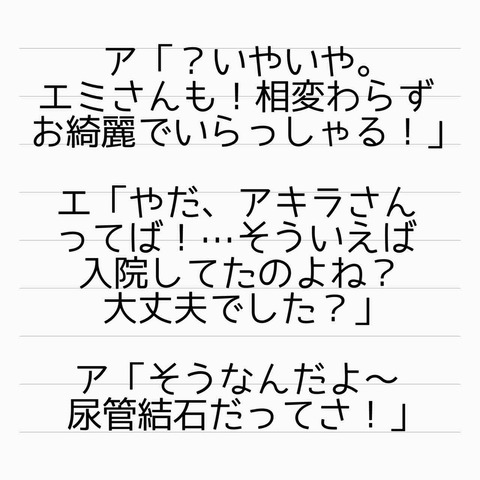 ア「？いやいや。
エミさんも！相変わらず
お綺麗でいらっしゃる！」
エ「やだ、アキラさん
ってば！…そういえば
入院してたのよね？
大丈夫でした？」
ア「そうなんだよ～
尿管結石だってさ！」